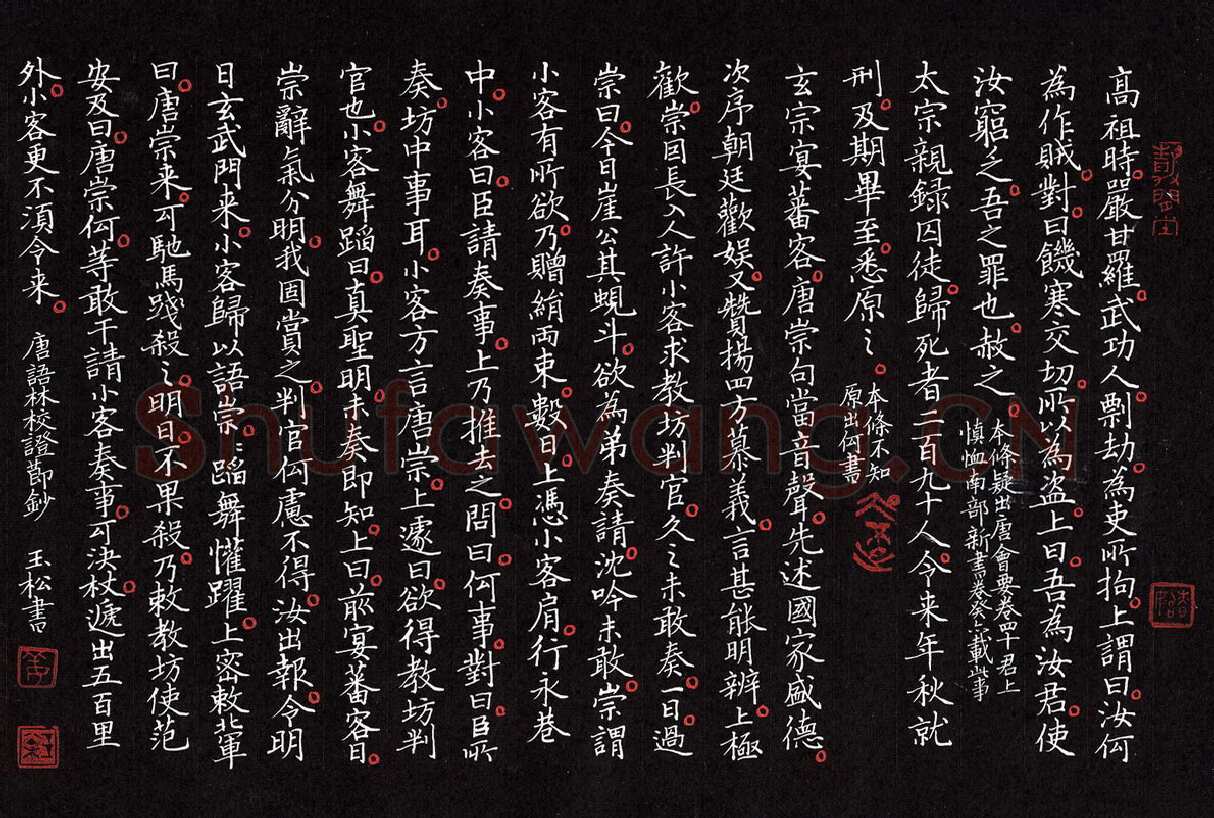 高祖時。嚴甘羅武功人。剽劫。為吏所拘。上謂曰。汝何
為作賊。對曰。饑寒交切。所以為盜。上曰。吾為汝君。使
汝窮之。吾之罪也。赦之。本條疑出唐會要卷四十君上
慎恤南部新書卷癸亦載此事
太宗親録囚徒。歸死者二百九十人。令来年秋就
刑。及期畢至。悉原之。本條不知
原出何書
玄宗宴蕃客。唐崇句當音聲。先述國家盛德。
次序朝廷歡娱。又贊揚四方慕義。言甚能明辨。上極
歡。崇因長入人許小客求教坊判官。久之未敢奏。一日過
崇曰。今日崖公甚蜆斗。欲為弟奏請。沈吟未敢。崇謂
小客有所欲。乃贈絹兩束。數日。上憑小客肩。行永巷
中。小客曰。臣請奏事。上乃推去之。問曰。何事。對曰。臣所
奏。坊中事耳。小客方言唐崇。上遽曰。欲得教坊判
官也。小客舞蹈曰。真聖明。未奏即知。上曰。前宴蕃客日。
崇辭氣分明。我固賞之。判官何慮不得。汝出報。令明
日玄武門来。小客歸以語崇。崇蹈舞懽躍。上密敕北軍
曰。唐崇来。可馳馬踐殺之。明日。不果殺。乃敕教坊使范
安及曰。唐崇何等。敢干請小客奏事。可決杖。遞出五百里
外。小客更不須令来。
唐語林校證節鈔
玉松書
Shufawang.CN